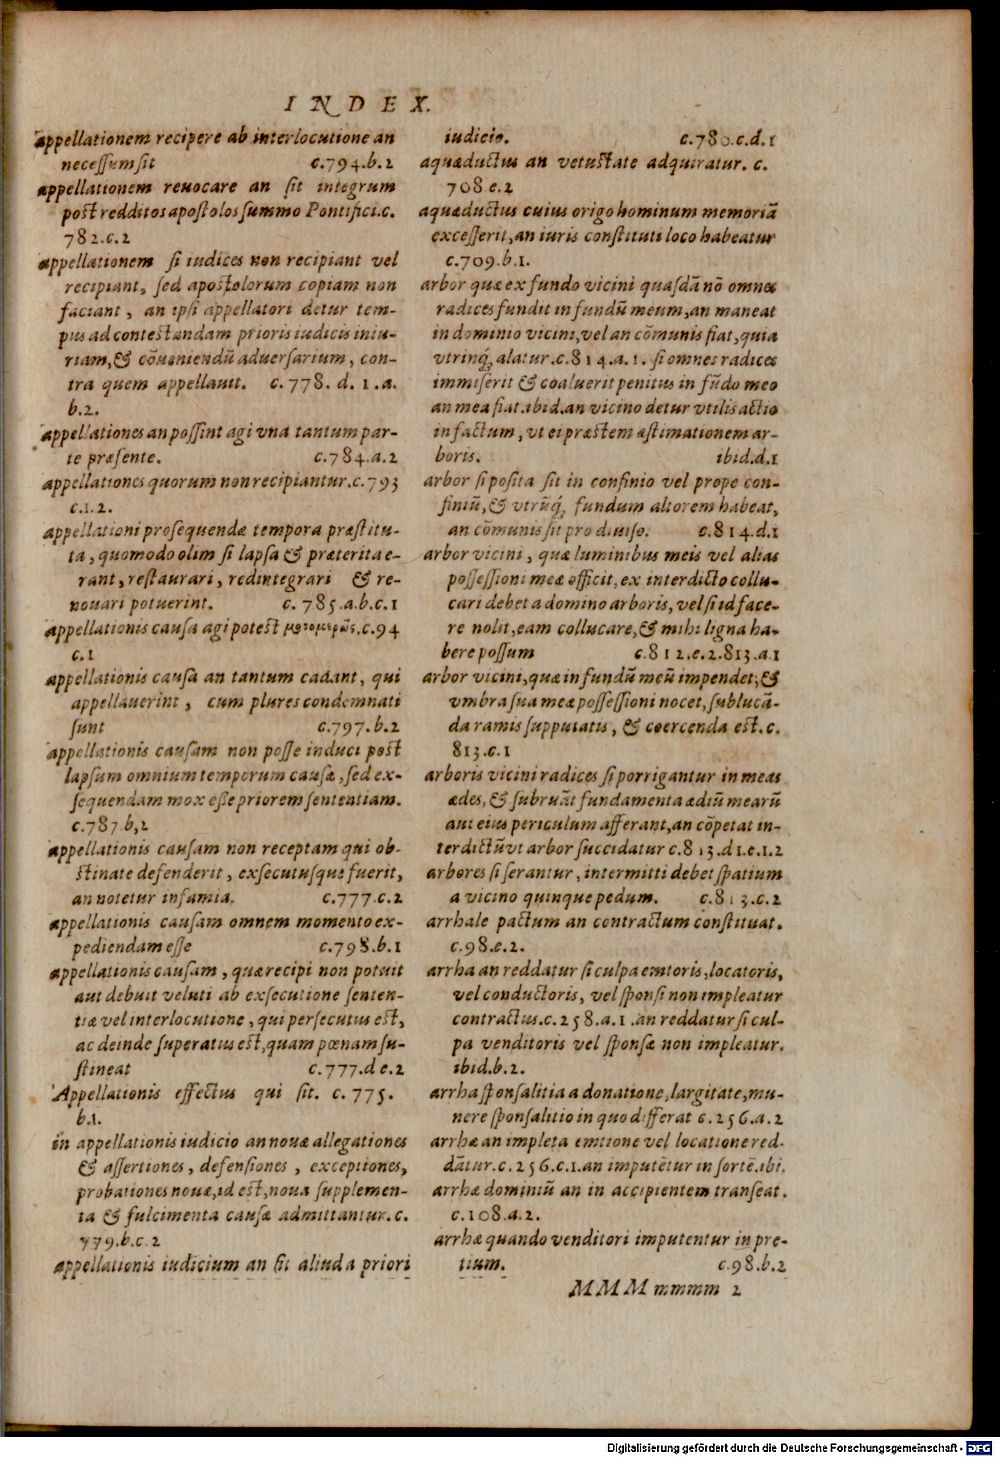 INDEX.
appellationem recipere ab interlocutione an
necessum sit c.794.b.2
appellationem reuocare an sit integrum
post redditos apostolos summo Pontifici.c.
782.c.2
appellationem si iudices non recipiant vel
recipiant, sed apostolorum copiam non
faciant, an ipsi appellatori detur tem-
pus ad contestandam prioris iudicis iniu-
riam, & cõueniendũ aduersarium, con-
tra quem appellauit. c.778. d. 1.a.
b.2.
appellationes an possint agi vna tantum par-
te præsente. c.784.a.2
appellationes quorum non recipiantur.c.793
c.1.2.
appellationi prosequendæ tempora præstitu-
ta, quomodo olim si lapsa & præterita e-
rant, restaurari, redintegrari & re-
nouari potuerint. c. 785.a.b.c.1
appellationis causa agi potest μονομερῶς.c.94
c.1
appellationis causa an tantum cadant, qui
appellauerint, cum plures condemnati
sunt c.797.b.2
appellationis causam non posse induci post
lapsum omnium temporum causæ, sed ex-
sequendam mox esse priorem sententiam.
c.787.b,2
appellationis causam non receptam qui ob-
stinate defenderit, exsecutusque fuerit,
an notetur infamia. c.777.c.2
appellationis causam omnem momento ex-
pediendam esse c.798.b.1
appellationis causam, quæ recipi non potuit
aut debuit veluti ab exsecutione senten-
tiæ vel interlocutione, qui persecutus est,
ac deinde superatus est, quam pœnam su-
stineat c.777.d e.2
Appellationis effectus qui sit. c. 775.
b.1.
in appellationis iudicio an nouæ allegationes
& assertiones, defensiones, exceptiones,
probationes nouæ, id est, noua supplemen-
ta & fulcimenta causæ admittantur. c.
779.b.c.2
appellationis iudicium an sit aliud a priori
iudicio. c.780.c.d.1
aquæductus an vetustate adquiratur. c.
708.e.2
aquæductus cuius origo hominum memoriã
excesserit, an iuris constituti loco habeatur
c.709.b.1.
arbor quæ ex fundo vicini quasdã nõ omnes
radices fundit in fundũ meum, an maneat
in dominio vicini, vel an cõmunis fiat, quia
vtrinq; alatur.c.814.a.1. si omnes radices
immiserit & coaluerit penitus in fũdo meo
an mea fiat.ibid.an vicino detur vtilis actio
in factum, vt ei præstem æstimationem ar-
boris. ibid.d.1
arbor si posita sit in confinio vel prope con-
finiũ, & vtrũq; fundum altorem habeat,
an cõmunis sit pro diuiso. c.814.d.1
arbor vicini, quæ luminibus meis vel alias
possessioni meæ officit, ex interdicto collu-
cari debet a domino arboris, vel si id face-
re nolit, eam collucare, & mihi ligna ha-
bere possum c.812.e.2.813.a.1
arbor vicini, quæ in fundũ meũ impendet, &
vmbra sua meæ possessioni nocet, sublucã-
da ramis supputatis, & coercenda est. c.
813.c.1
arboris vicini radices si porrigantur in meas
ædes, & subruãt fundamenta ædiũ mearũ
aut eius periculum afferant, an cõpetat in-
terdictũ vt arbor succidatur c.813.d1.e.1.2
arbores si serantur, intermitti debet spatium
a vicino quinque pedum. c.813.c.2
arrhale pactum an contractum constituat.
c.98.e.2.
arrha an reddatur si culpa emtoris, locatoris,
vel conductoris, vel sponsi non impleatur
contractus.c.258.a.1.an reddatur si cul-
pa venditoris vel sponsæ non impleatur.
ibid.b.2.
arrha sponsalitia a donatione, largitate, mu-
nere sponsalitio in quo differat c.256.a.2
arrhæ an impleta emtione vel locatione red-
dãtur.c.256.c.1.an imputẽtur in sortẽ.ibi.
arrhæ dominiũ an in accipientem transeat.
c.108.a.2.
arrhæ quando venditori imputentur in pre-
tium. c.98.b.2
MMMmmmm 2
Digitalisierung gefördert durch die Deutsche Forschungsgemeinschaft - DFG